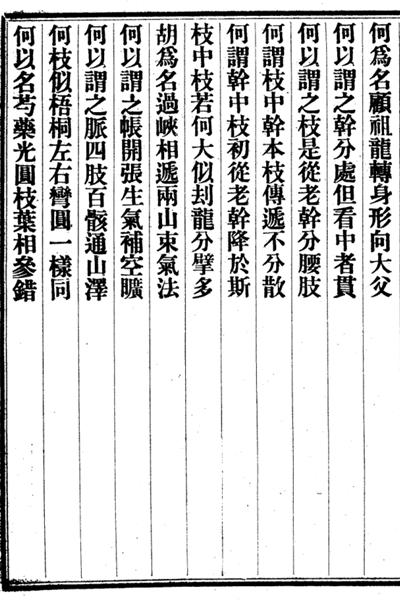 何爲名顧祖龍轉身形向大父
何以謂之幹分處但看中者貫
何以謂之枝是從老幹分腰肢
何謂枝中幹本枝傳遞不分散
何謂幹中枝初從老幹降於斯
枝中枝若何大似刦龍分擘多
胡爲名過峽相遞兩山束氣法
何以謂之帳開張生氣補空曠
何以謂之脈四肢百骸通山澤
何枝似梧桐左右彎圓一樣同
何以名芍藥光圓枝葉相參錯